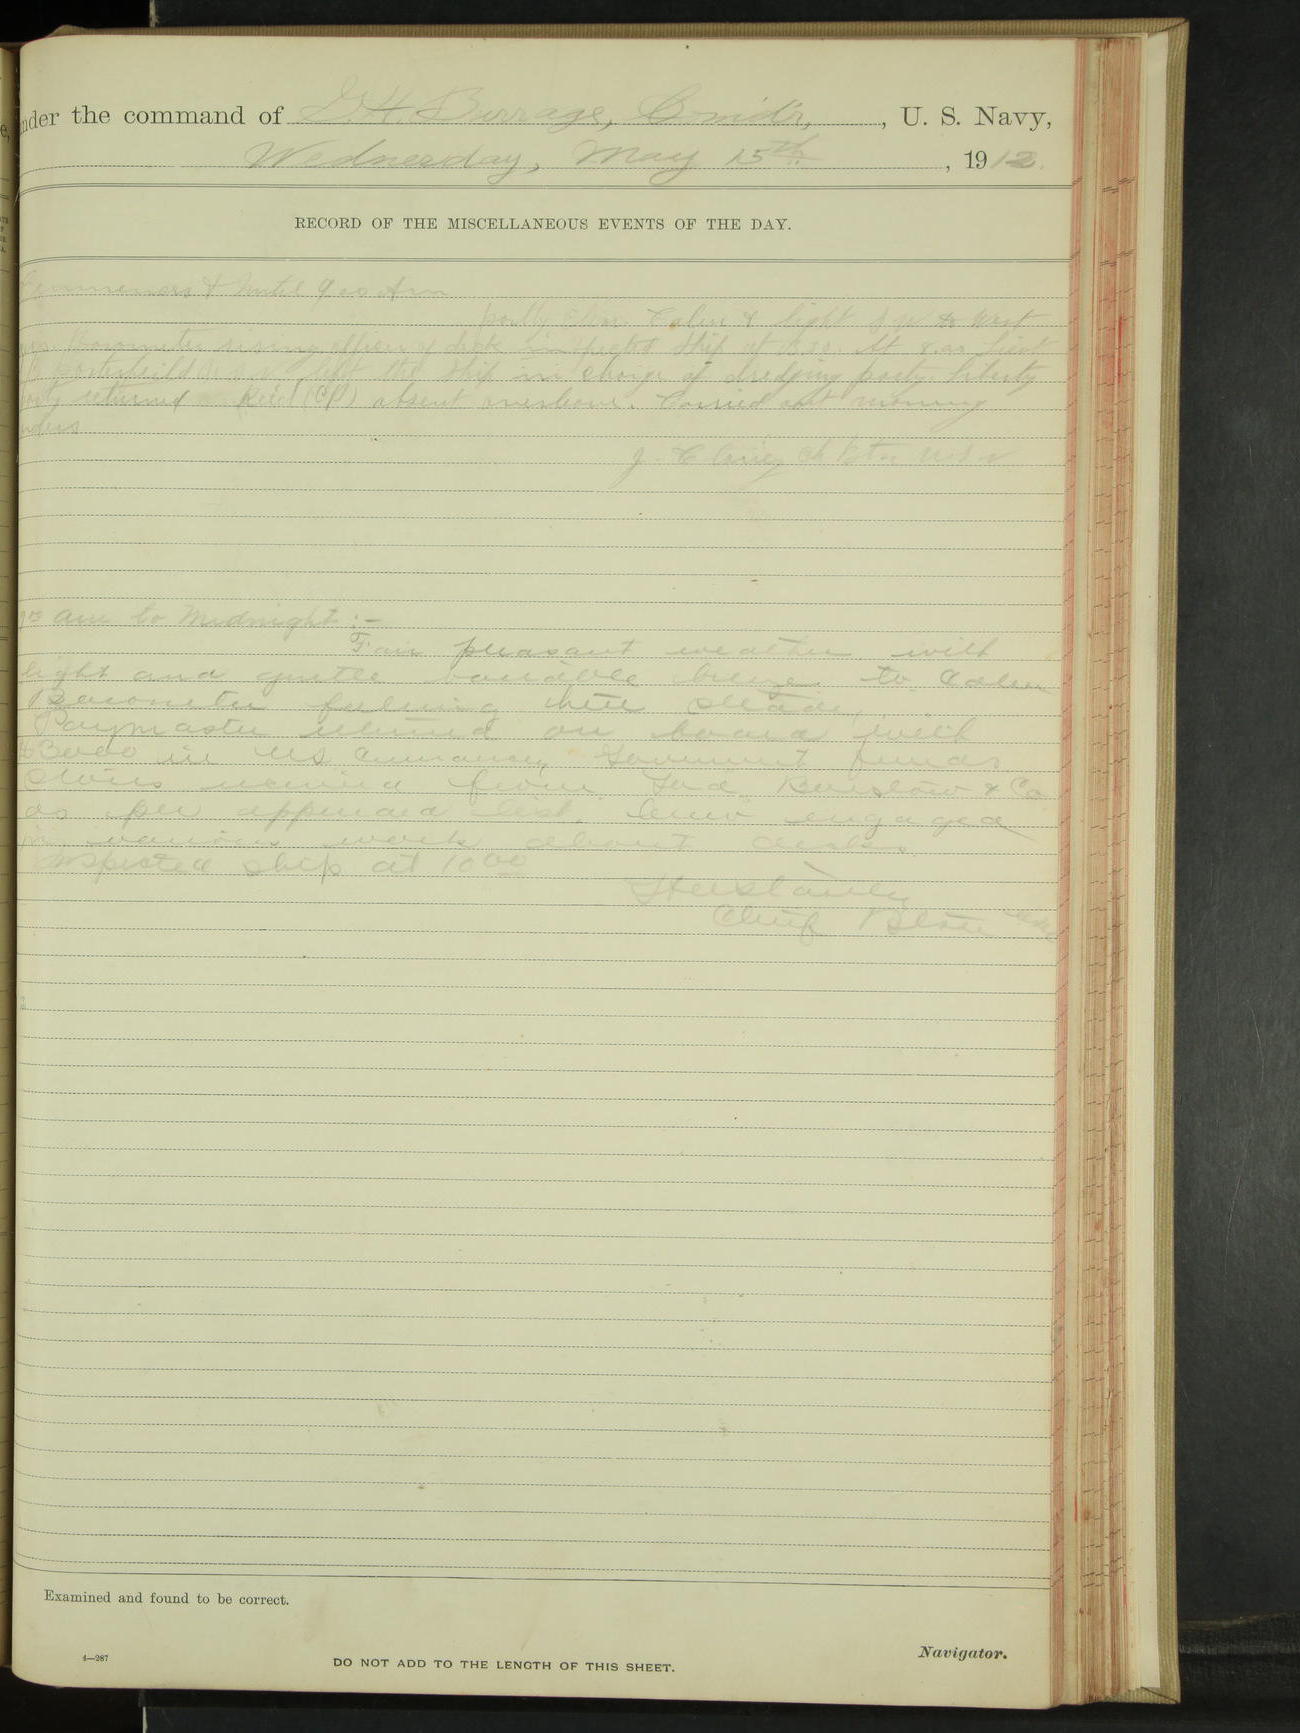 under the command of G. H. Burrage, Comdr., , U. S. Navy,
Wednesday, May 15th. , 1912.
RECORD OF THE MISCELLANEOUS EVENTS OF THE DAY.
Commences & until 9 00 Am
partly clear. Calm & light S W to West
Barometer rising officer of deck inspected ship at 8.30. At 8.00
left the ship in charge of dredging party. Liberty
party returned Reid (CP) absent overleave. Carried out morning
orders
J. Ch Btn U S N
am to Midnight :-
Fair pleasant weather with
light and gentle variable breeze to calm
Barometer falling then steady.
Paymaster returned on board with
$3000 in US Currency Government funds
Stores received from Ford Barstow & Co.
as per appended list. Crew engaged
in various work about decks.
Inspected ship at 10 00
Chief Btsn USN
Examined and found to be correct.
4—287
DO NOT ADD TO THE LENGTH OF THIS SHEET.
Navigator.